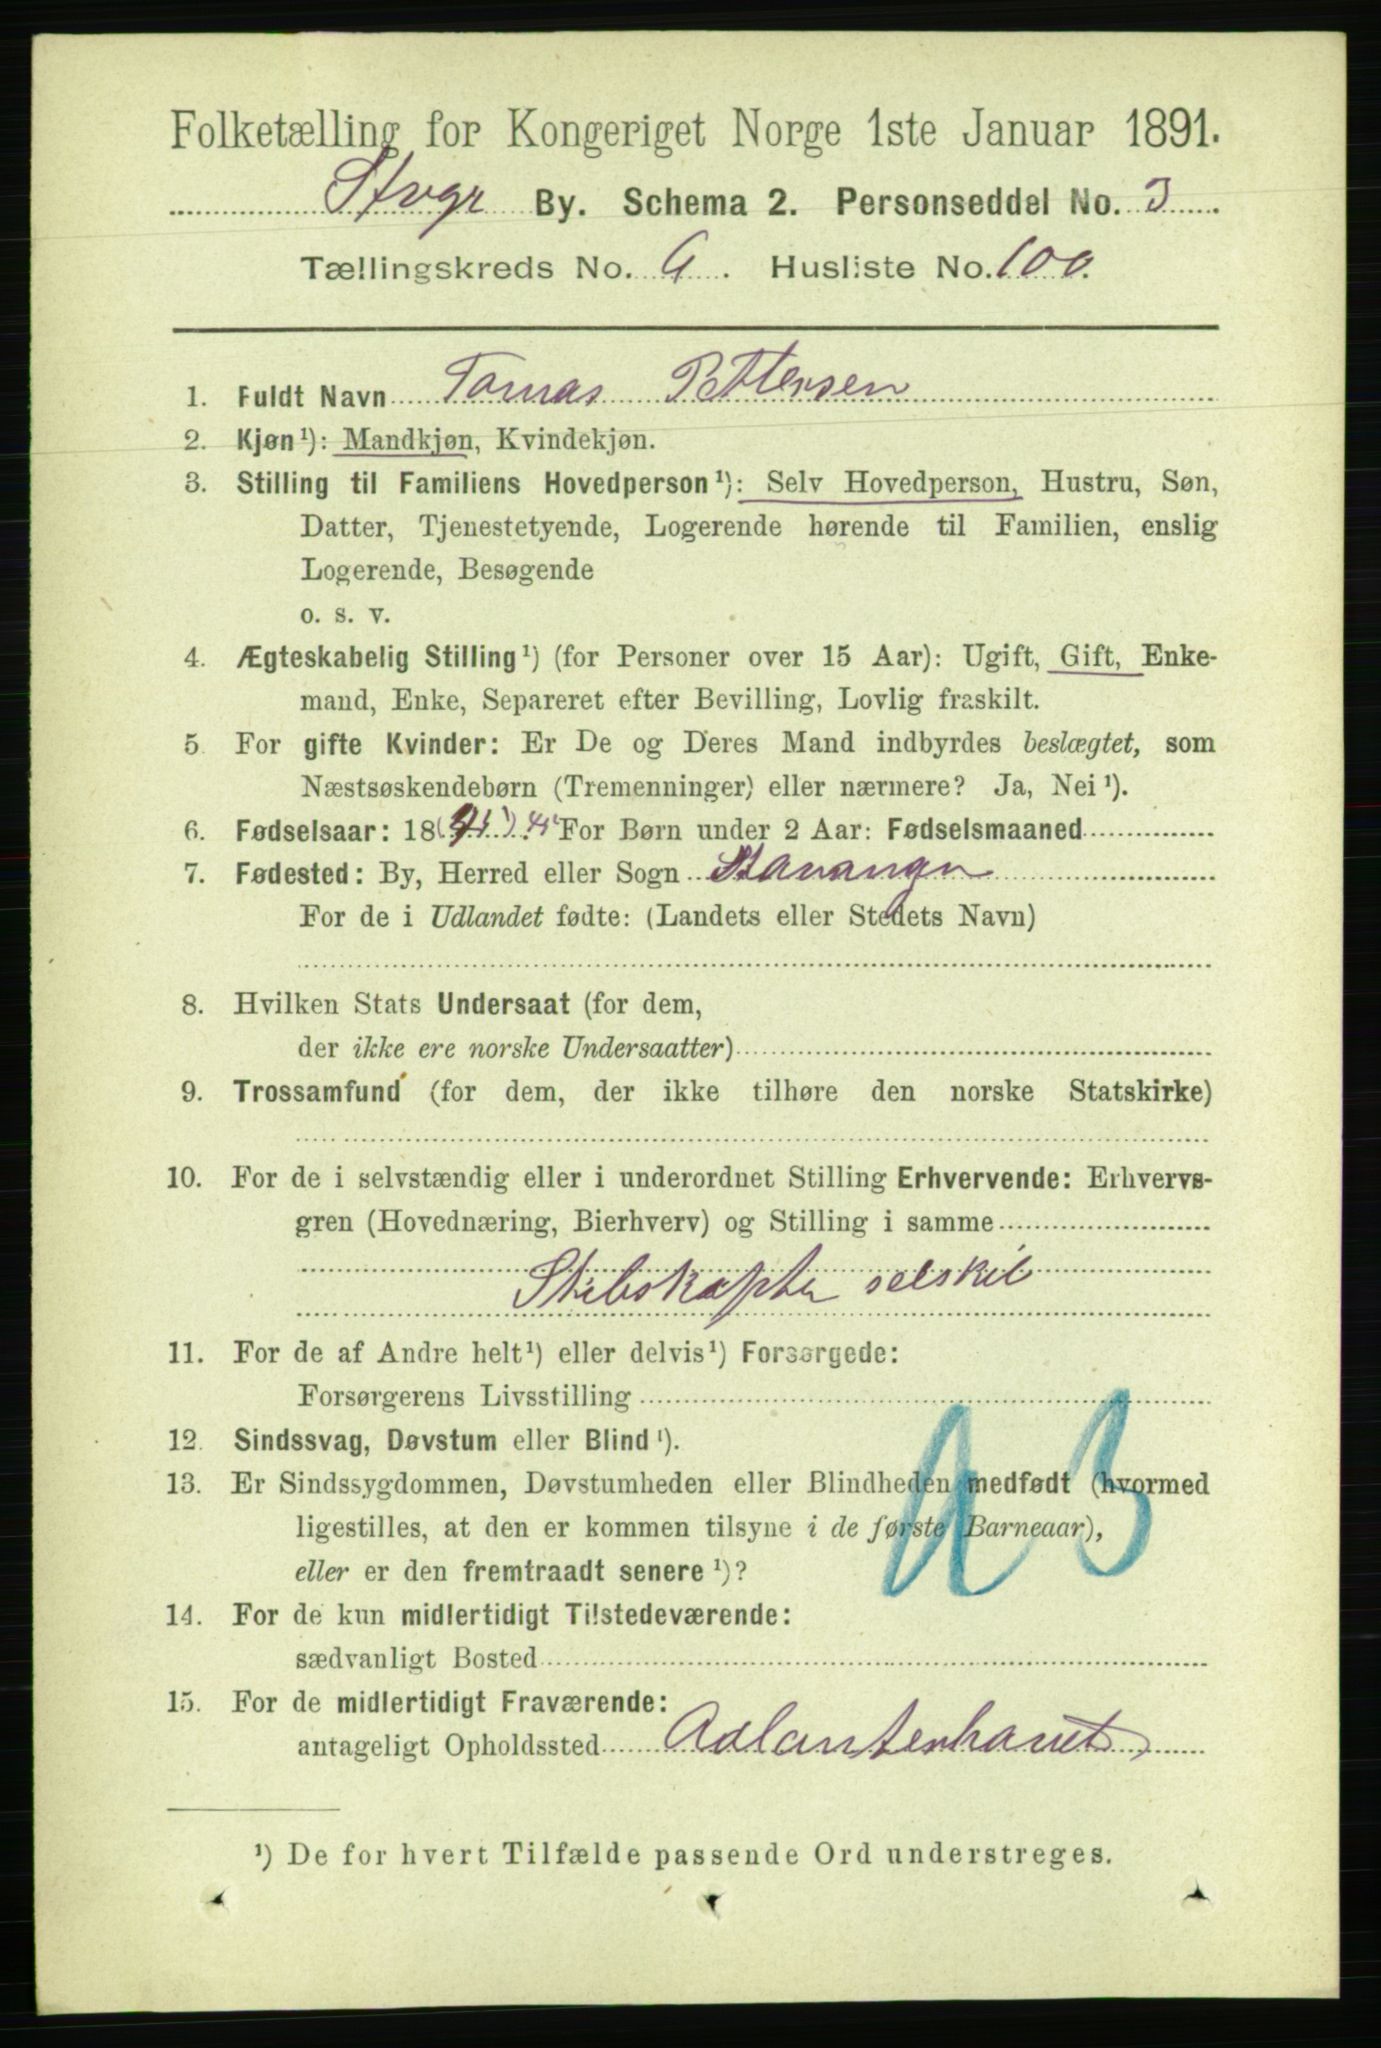 Folketælling for Kongeriget Norge 1ste Januar 1891.
Stvgr By. Schema 2. Personseddel No. 3
Tællingskreds No. 9. Husliste No. 100.
1. Fuldt Navn Tomas Pettersen
2. Kjøn¹): Mandkjøn, Kvindekjøn.
3. Stilling til Familiens Hovedperson¹): Selv Hovedperson, Hustru, Søn,
Datter, Tjenestetyende, Logerende hørende til Familien, enslig
Logerende, Besøgende
o. s. v.
4. Ægteskabelig Stilling¹) (for Personer over 15 Aar): Ugift, Gift, Enke-
mand, Enke, Separeret efter Bevilling, Lovlig fraskilt.
5 For gifte Kvinder: Er De og Deres Mand indbyrdes beslægtet, som
Næstsøskendebørn (Tremenninger) eller nærmere? Ja, Nei¹).
6. Fødselsaar: 18 For Børn under 2 Aar: Fødselsmaaned
7. Fødested: By, Herred eller Sogn Stavanger
For de i Udlandet fødte: (Landets eller Stedets Navn)
8. Hvilken Stats Undersaat (for dem,
der ikke ere norske Undersaatter)
9. Trossamfund (for dem, der ikke tilhøre den norske Statskirke)
10. For de i selvstændig eller i underordnet Stilling Erhvervende: Erhvervs-
gren (Hovednæring, Bierhverv) og Stilling i samme
Skibskapten
11. For de af Andre helt¹) eller delvis¹) Forsørgede:
Forsørgerens Livsstilling
12. Sindssvag, Døvstum eller Blind¹).
13. Er Sindssygdommen, Døvstumheden eller Blindheden medfødt (hvormed
ligestilles, at den er kommen tilsyne i de første Barneaar),
eller er den fremtraadt senere¹)?
14. For de kun midlertidigt Tilstedeværende:
sædvanligt Bosted
15. For de midlertidigt Fraværende:
antageligt Opholdssted Adlantenhavet
¹) De for hvert Tilfælde passende Ord understreges.